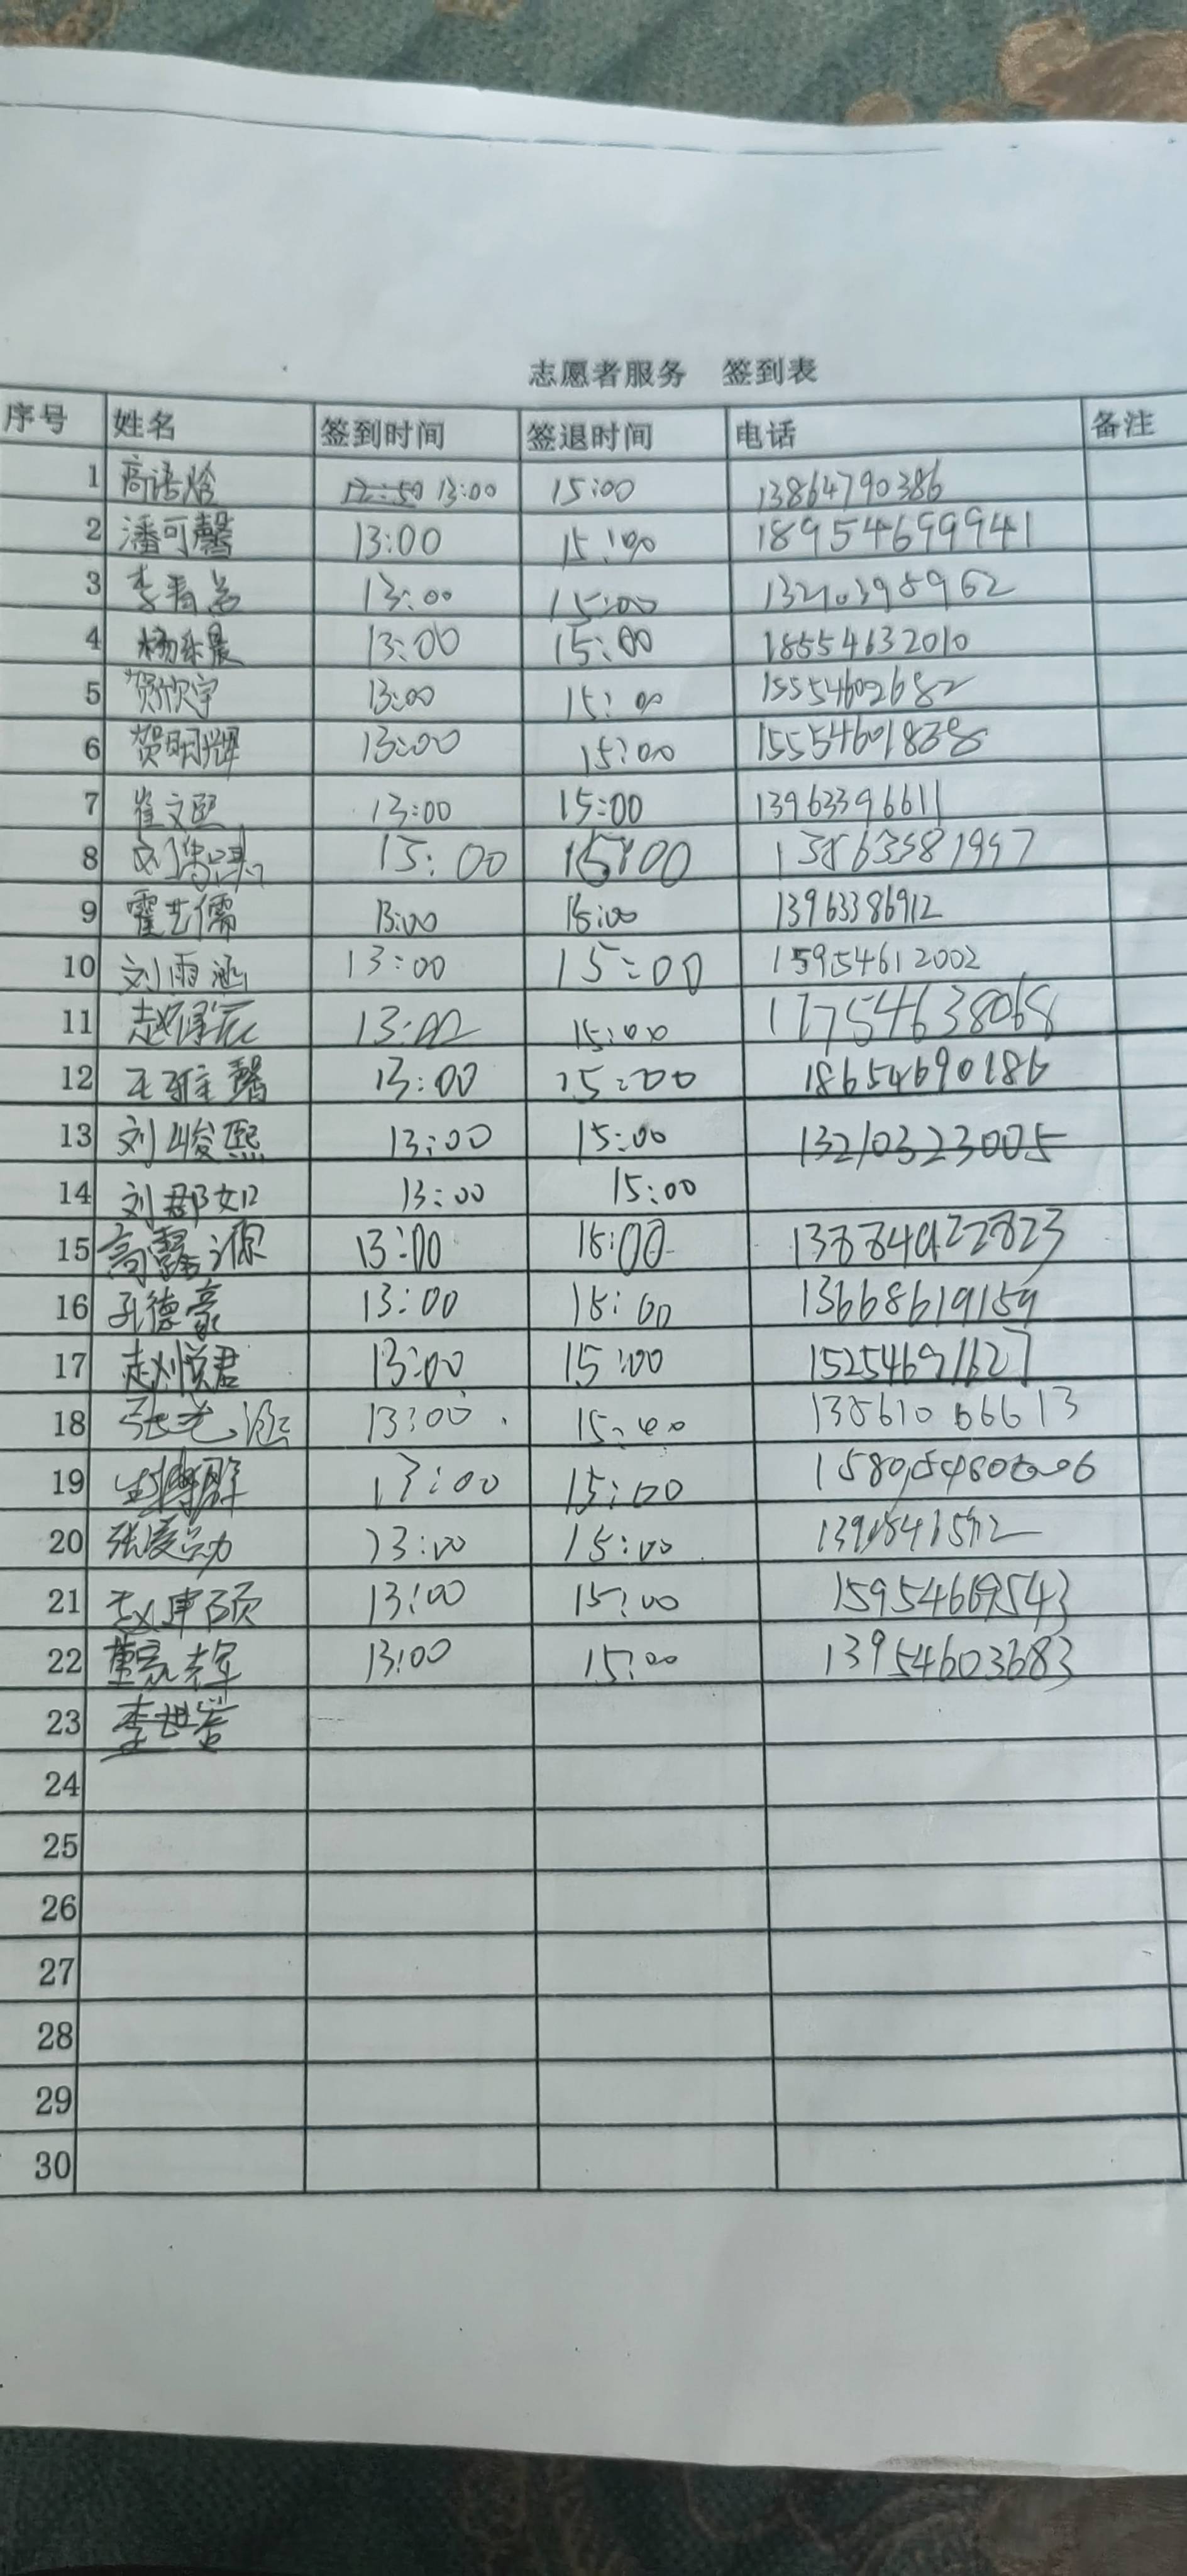 志愿者服务 签到表
序号 姓名 签到时间 签退时间 电话 备注
1 高语晗 12:50 13:00 15:00 13864790386
2 潘可馨 13:00 15:00 18954699941
3 李 13:00 15:00 13210398962
4 杨 晨 13:00 15:00 18554632010
5 贺欣宇 13:00 15:00 15554602682
6 贺明辉 13:00 15:00 15554601838
7 崔文熙 13:00 15:00 13963396611
8 刘 15:00 15:00 13863381997
9 霍艺儒 13:00 15:00 13963386912
10 刘雨涵 13:00 15:00 15954612002
11 赵 辰 13:00 15:00 17754638068
12 王雅馨 13:00 15:00 18654690186
13 刘峻熙 13:00 15:00 13210323005
14 刘郡如 13:00 15:00
15 高露源 13:00 15:00
16 孔德豪 13:00 15:00 13668619159
17 赵刘悦君 13:00 15:00 15254691627
18 张艺涵 13:00 15:00 13861066613
19 13:00 15:00
20 张 13:00 15:00
21 赵 硕 13:00 15:00
22 董家 13:00 15:00 13954603683
23 李世岩
24
25
26
27
28
29
30